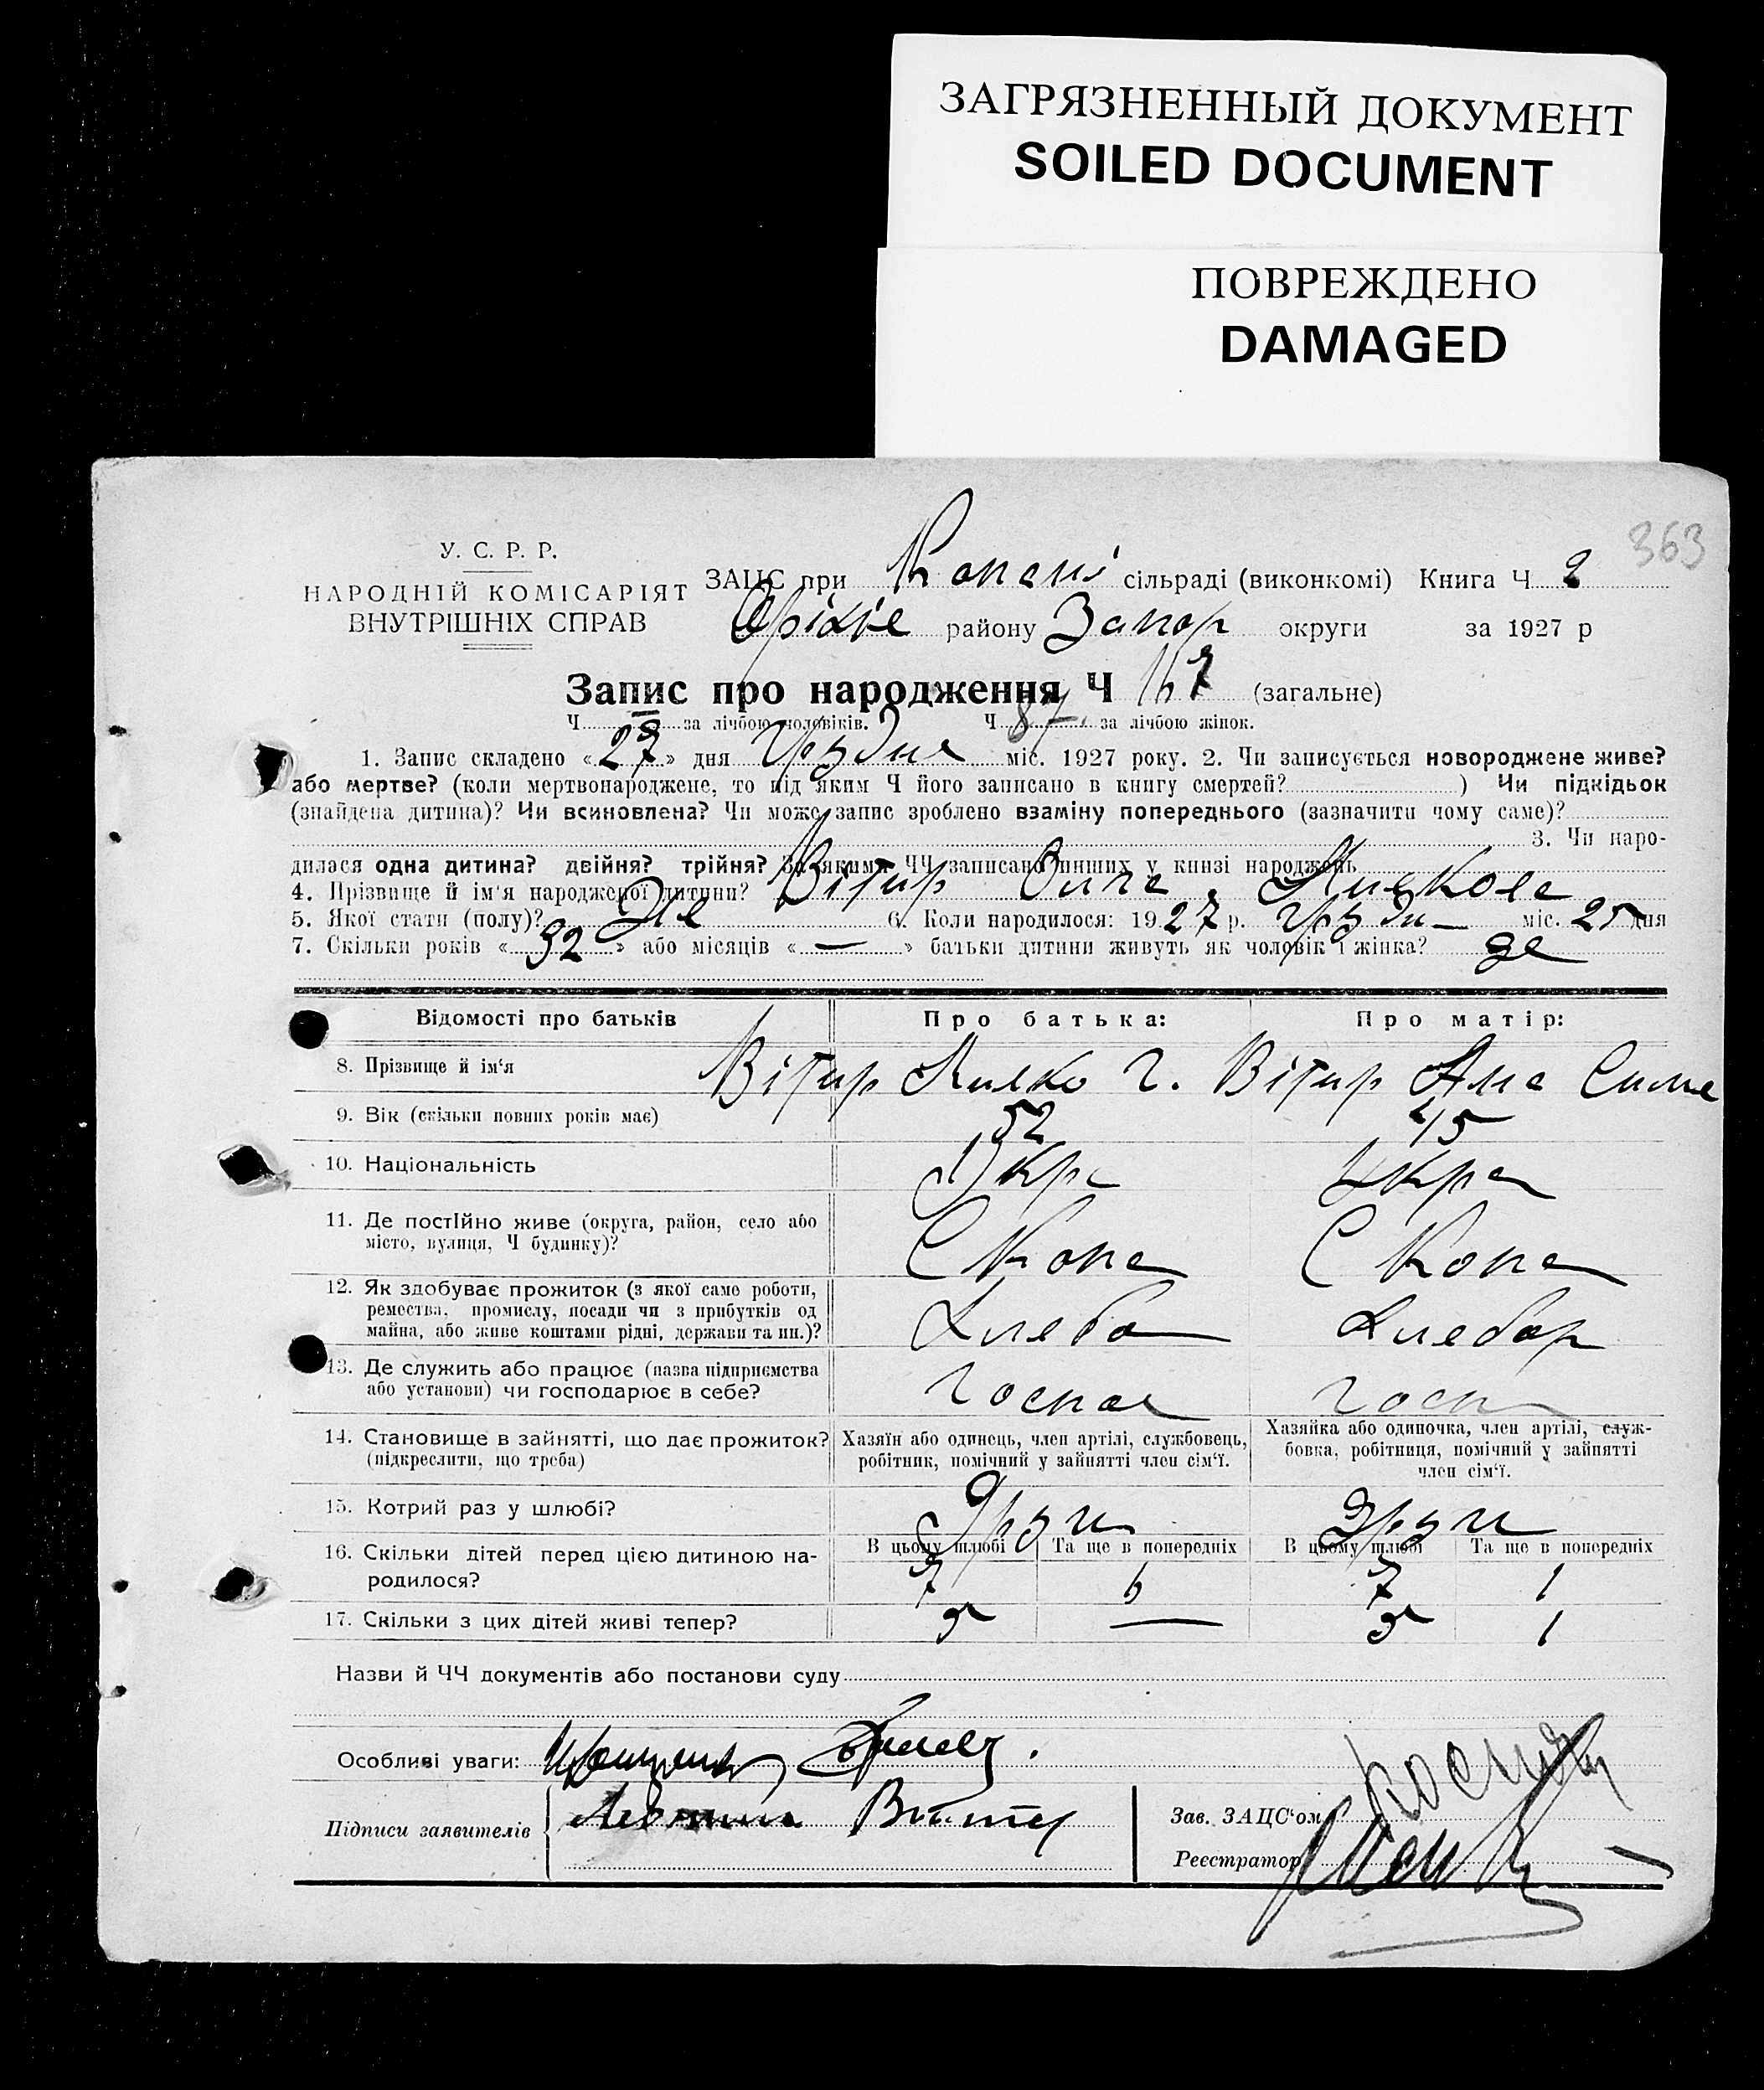 ЗАГРЯЗНЕННЫЙ ДОКУМЕНТ
SOILED DOCUMENT
ПОВРЕЖДЕНО
DAMAGED
363
У. С. Р. Р.
НАРОДНІЙ КОМІСАРІЯТ
ВНУТРІШНІХ СПРАВ
ЗАЦС при Копані сільраді (виконкомі) Книга Ч 2
Оріхів району Запор округи за 1927 р
Запис про народження Ч 167 (загальне)
Ч за лічбою чоловіків. Ч 87 за лічбою жінок.
1. Запис складено «27» дня Грудня міс. 1927 року. 2. Чи записується новороджене живе?
або мертве? (коли мертвонароджене, то під яким Ч його записано в книгу смертей? ) Чи підкідьок
(знайдена дитина)? Чи всиновлена? Чи може запис зроблено взаміну попереднього (зазначити чому саме)?
3. Чи наро-
дилася одна дитина? двійня? трійня? За якими ЧЧ записано инших у книзі народжень
4. Прізвище й ім'я народженої дитини? Вітир
5. Якої стати (полу)? Же 6. Коли народилося: 1927 р. Грудн міс. 25 дня
7. Скільки років «32» або місяців «—» батьки дитини живуть як чоловік і жінка?
Відомості про батьків Про батька: Про матір:
8. Прізвище й ім'я Вітир Г. Вітир
9. Вік (скільки повних років має) 52 45
10. Національність Укра Укра
11. Де постІйно живе (округа, район, село або С Копа С Копа
місто, вулиця, Ч будинку)?
12. Як здобуває прожиток (з якої саме роботи,
ремества, промислу, посади чи з прибутків од Хлебо Хлебор
майна, або живе коштами рідні, держави та ин.)?
13. Де служить або працює (назва підприємства Госпо Госп
або установи) чи господарює в себе?
14. Становище в зайнятті, що дає прожиток? Хазяїн або одинець, член артілі, службовець, Хазяйка або одиночка, член артілі, служ-
(підкреслити, що треба) робітник, помічний у зайнятті член сім'ї. бовка, робітниця, помічний у зайнятті
член сім'ї.
15. Котрий раз у шлюбі? Други Други
16. Скільки дітей перед цією дитиною на- В цьому шлюбі Та ще в попередніх В цьому шлюбі Та ще в попередніх
родилося? 7 6 7 1
17. Скільки з цих дітей живі тепер? 5 — 5 1
Назви й ЧЧ документів або постанови суду
Особливі уваги:
Підписи заявителів
Зав. ЗАЦС'ом
Реєстратор